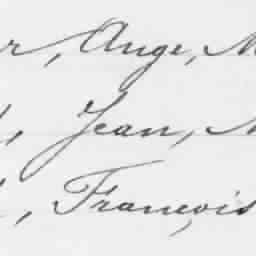 r, Ange, M
, Jean, M
, François